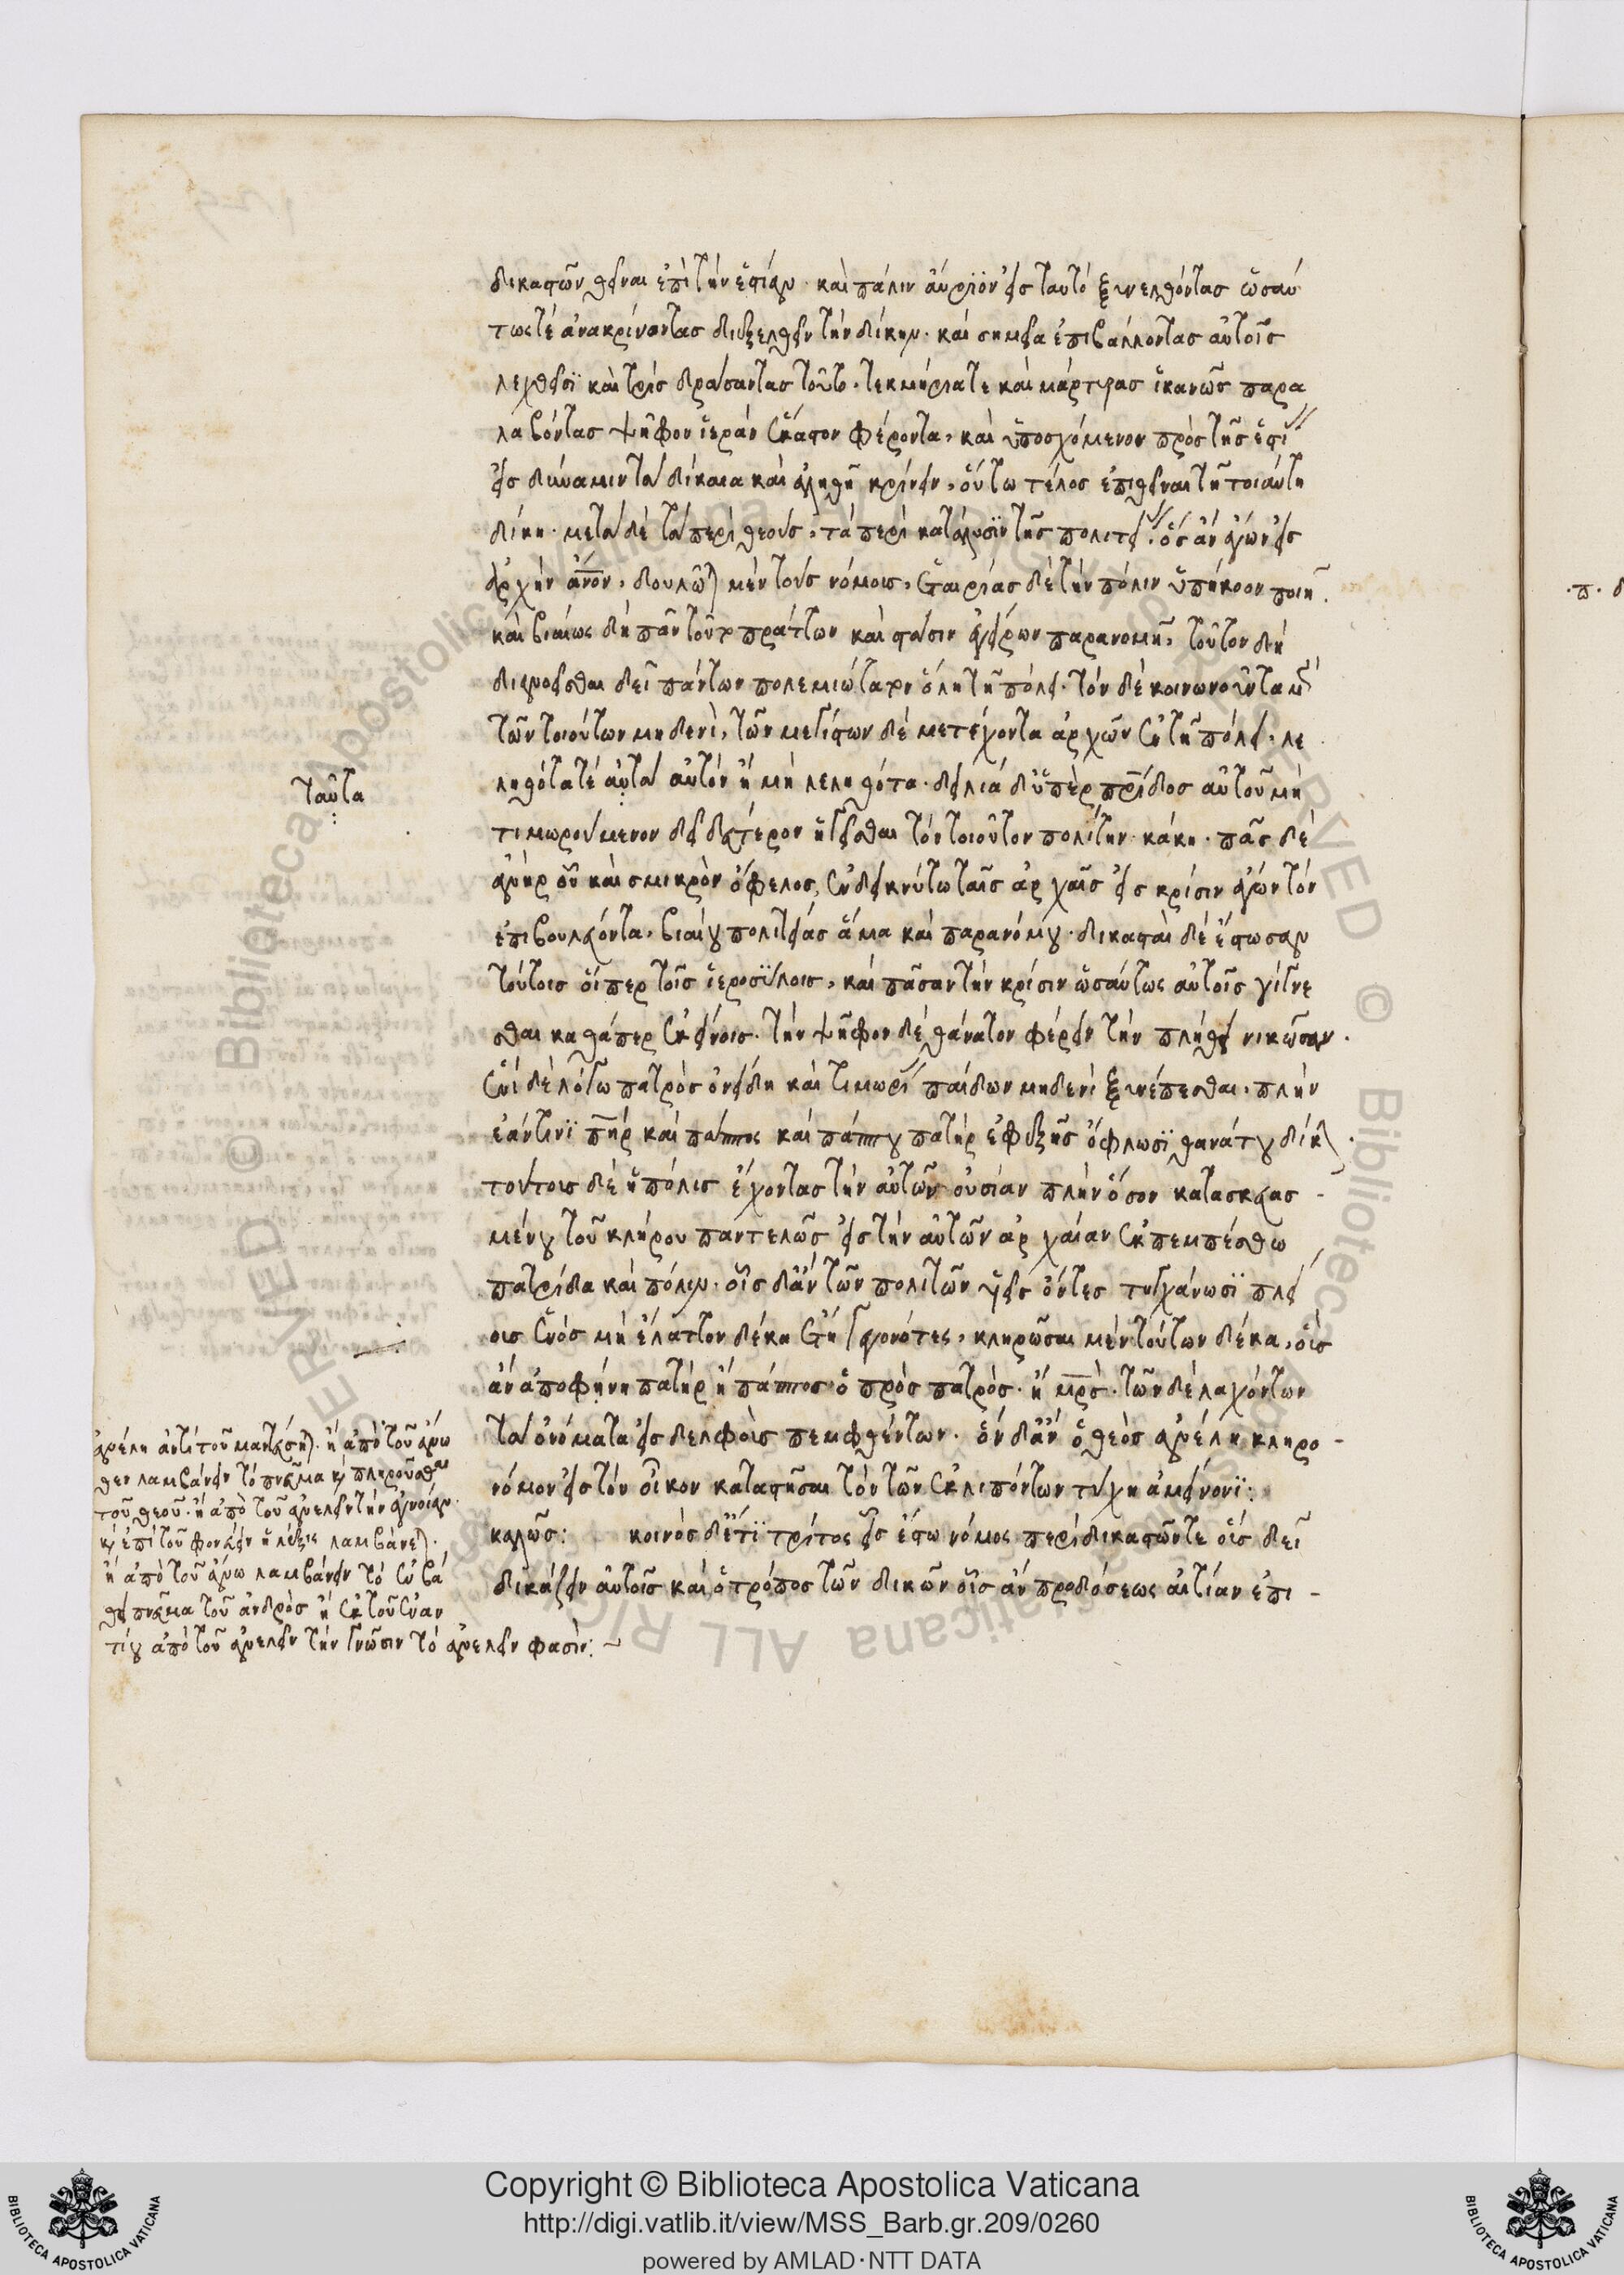 δικαστῶν θεῖναι ἐπὶ τὴν ἑστίαν· καὶ πάλιν αὔριον εἰς ταυτὸ ξυνελθόντας ὡσαύ
τως τὲ ἀνακρίναντας διεξελθεῖν τὴν δίκην· καὶ σημεῖα ἐπιβάλλοντας αὐτοῖς
λεχθεῖσϊ καὶ τρὶς δράσαντας τοῦτο, τεκμήριά τε καὶ μάρτυρας ἱκανῶς παρα
λαβόντας ψῆφον ἱερὰν ἕκαστον φέροντα, καὶ ὑποσχόμενον πρὸς τῆς ἑστί
εἰς δύναμιν τὰ δίκαια καὶ ἀληθῆ κρίνειν, οὕτω τέλος ἐπιθεῖναι τῆ τοιαύτη
δίκη· μετὰ δὲ τὰ περὶ θεοὺς, τὰ περὶ κατάλυσϊν τῆς πολιτεί· ὃς ἂν ἄγων εἰς
ἀρχὴν ἄνον, δουλῶται μὲν τοὺς νόμους, ἑταιρίας δὲ τὴν πόλιν ὑπήκοον ποιῆ
καὶ βιαίως δὴ πᾶν τοῦτο πράττων καὶ στάσιν ἐγείρων παρανομῆ, τοῦτον δὴ
διανοεῖσθαι δεῖ πάντων πολεμιώτατον ὅλη τῆ πόλει· τὸν δὲ κοινωνοῦντα μὲν
τῶν τοιούτων μηδενὶ, τῶν μεγίστων δὲ μετέχοντα ἀρχῶν ἐν τῆ πόλει, λε
ληθότα τὲ αὐτὰ αὐτὸν ἢ μὴ λεληθότα· δειλιά δ' ὑπὲρ πρίδος αὐτοῦ μὴ
τιμωρούμενον δεῖ δεύτερον ἡγεῖσθαι τὸν τοιοῦτον πολίτην κάκη· πᾶς δὲ
ἀνὴρ οὗ καὶ σμικρὸν ὄφελος, ἐνδεικνύτω ταῖς ἀρχαῖς εἰς κρίσιν ἄγων τὸν
ἐπιβουλεύοντα, βιαίου πολιτείας ἅμα καὶ παρανόμου· δικασταὶ δὲ ἔστωσαν
τούτοις οἵπερ τοῖς ἱεροσΰλοις, καὶ πᾶσαν τὴν κρίσιν ὡσαύτως αὐτοῖς γίγνε
σθαι καθάπερ ἐκείνοις· τὴν ψῆφον δὲ θάνατον φέρειν τὴν πλήθει νικῶσαν·
ἑνὶ δὲ λόγω πατρὸς ὀνείδη καὶ τιμωρί παίδων μηδενὶ ξυνέπεσθαι· πλὴν
ἐάν τινϊ πὴρ καὶ πάππος καὶ πάππου πατὴρ ἐφεξῆς ὄφλωσϊ θανάτου δίκ
τούτους δὲ ἡ πόλις ἔχοντας τὴν αὑτῶν οὐσίαν πλὴν ὅσον κατασκευασ-
μένου τοῦ κλήρου παντελῶς εἰς τὴν αὑτῶν ἀρχαίαν ἐκπεμπέσθω
πατρίδα καὶ πόλιν· οἷς δἂν τῶν πολιτῶν υἱεῖς ὄντες τυγχάνωσϊ πλεί
ους ἑνὸς μὴ ἔλαττον δέκα ἔτη γεγονότες, κληρῶσαι μὲν τούτων δέκα, οὓς
ἂν ἀποφήνη πατὴρ ἢ πάππος ὁ πρὸς πατρὸς· ἢ μρὸς· τῶν δὲ λαχόντων
τὰ ὀνόματα εἰς δελφοὺς πεμφθέντων· ὃν δἂν ὁ θεὸς ἀνέλη κληρο-
νόμον εἰς τὸν οἶκον καταστῆσαι τὸν τῶν ἐκλιπόντων τύχη ἀμείνονϊ:
καλῶς: κοινὸς δ' ἔτϊ τρίτος εἷς ἔστω νόμος περὶ δικαστῶν τε οὓς δεῖ
δικάζειν αὐτοῖς καὶ ὁ τρόπος τῶν δικῶν οἷς ἂν προδόσεως αἰτίαν ἐπι-
ταῦτα
ἀνέλη ἀντὶ τοῦ μαντεύσηται· ἢ ἀπὸ τοῦ ἄνω
θεν λαμβάνειν τὸ πνεῦμα καὶ πληροῦσθαι
τοῦ θεοῦ· ἢ ἀπὸ τοῦ ἀνελεῖν τὴν ἄγνοιαν·
καὶ ἐπὶ τοῦ φονεύειν ἡ λέξις λαμβάνεται·
ἢ ἀπὸ τοῦ ἄνω λαμβάνειν τὸ ἐν βά
θει πνεῦμα τοῦ ἀνδρὸς ἢ ἐκ τοῦ ἐναν
τίου ἀπὸ τοῦ ἀνελεῖν τὴν γνῶσιν τὸ ἀνελεῖν φασὶν: ~
·π· δ
Copyright © Biblioteca Apostolica Vaticana
http://digi.vatlib.it/view/MSS_Barb.gr.209/0260
powered by AMLAD·NTT DATA